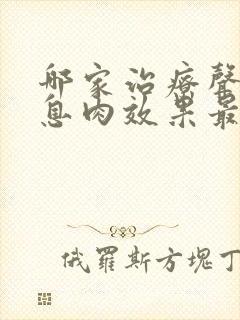 那家治疗聲
息肉效果最
俄羅斯方塊丁